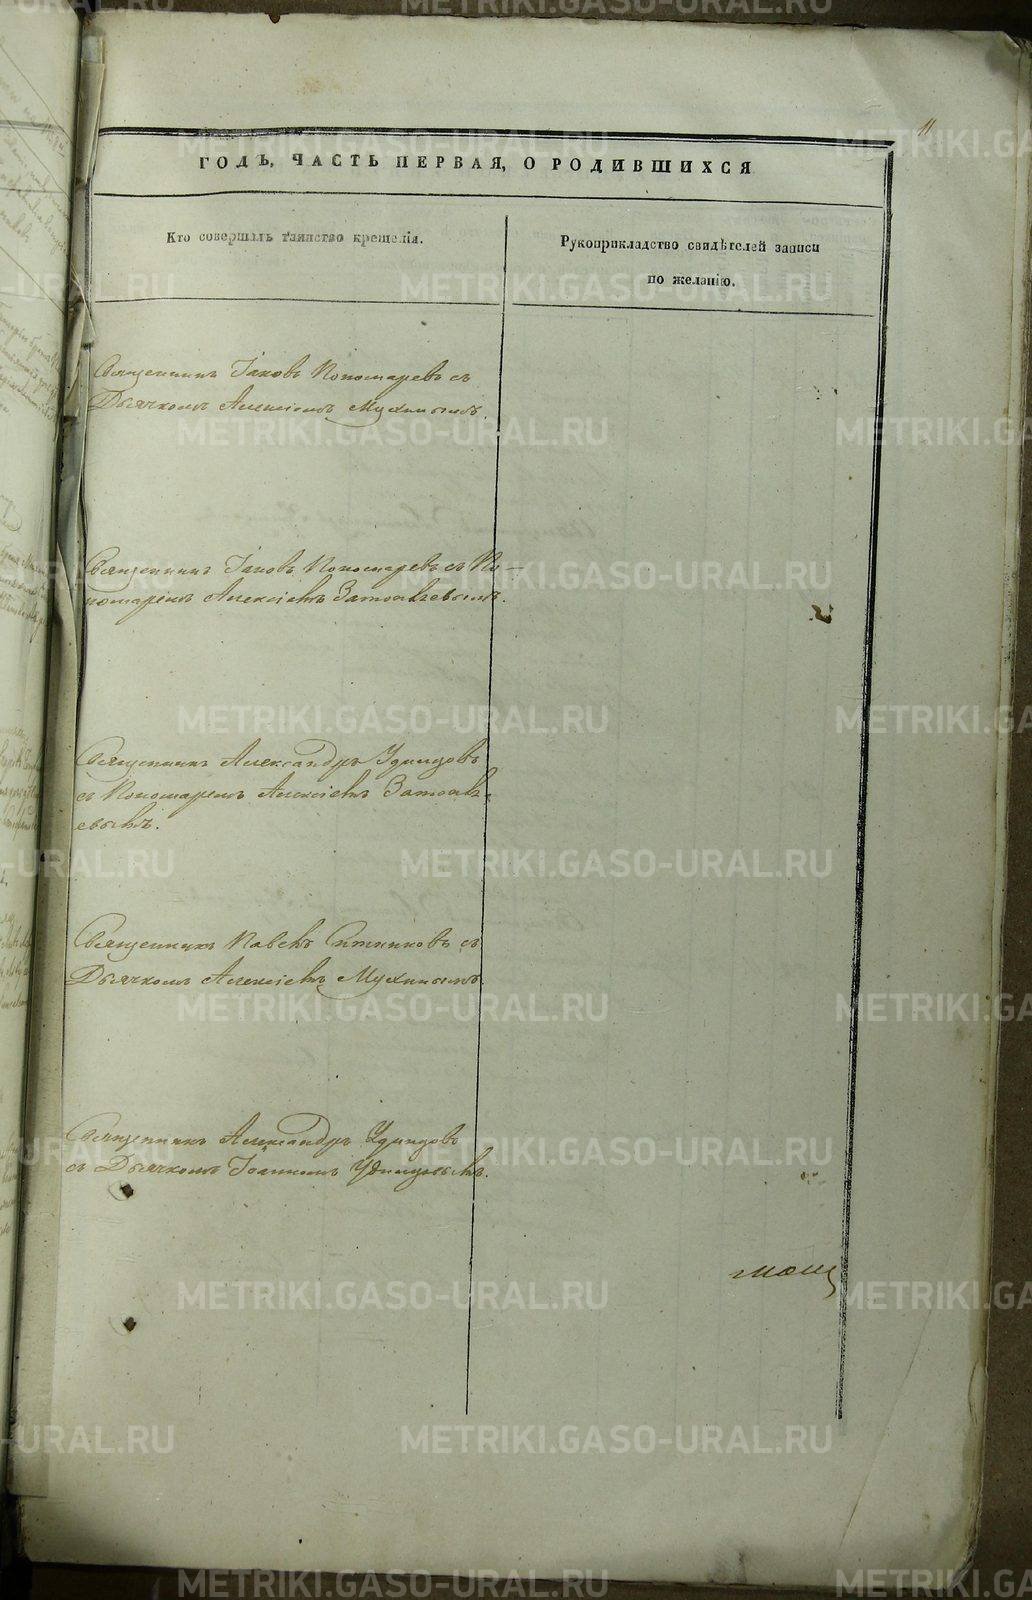 11
ГОДЪ, ЧАСТЬ ПЕРВАЯ, О РОДИВШИХСЯ
Кто совершалъ таинство крещенія.
Рукоприкладство свидѣтелей записи
по желанію.
Священникъ Іаковъ Пономаревъ съ
Дьячкомъ Алексіемъ Мухинымъ.
Священникъ Іаковъ Пономаревъ съ По-
номаремъ Алексіемъ
Священникъ Александръ Удинцовъ
съ Пономаремъ Алексіемъ
евымъ.
Священникъ Павелъ Ситниковъ съ
Дьячкомъ Алексіемъ Мухинымъ.
Священникъ Александръ Удинцовъ
съ Дьячкомъ Іоанномъ Удинцовымъ.
METRIKI.GASO-URAL.RU